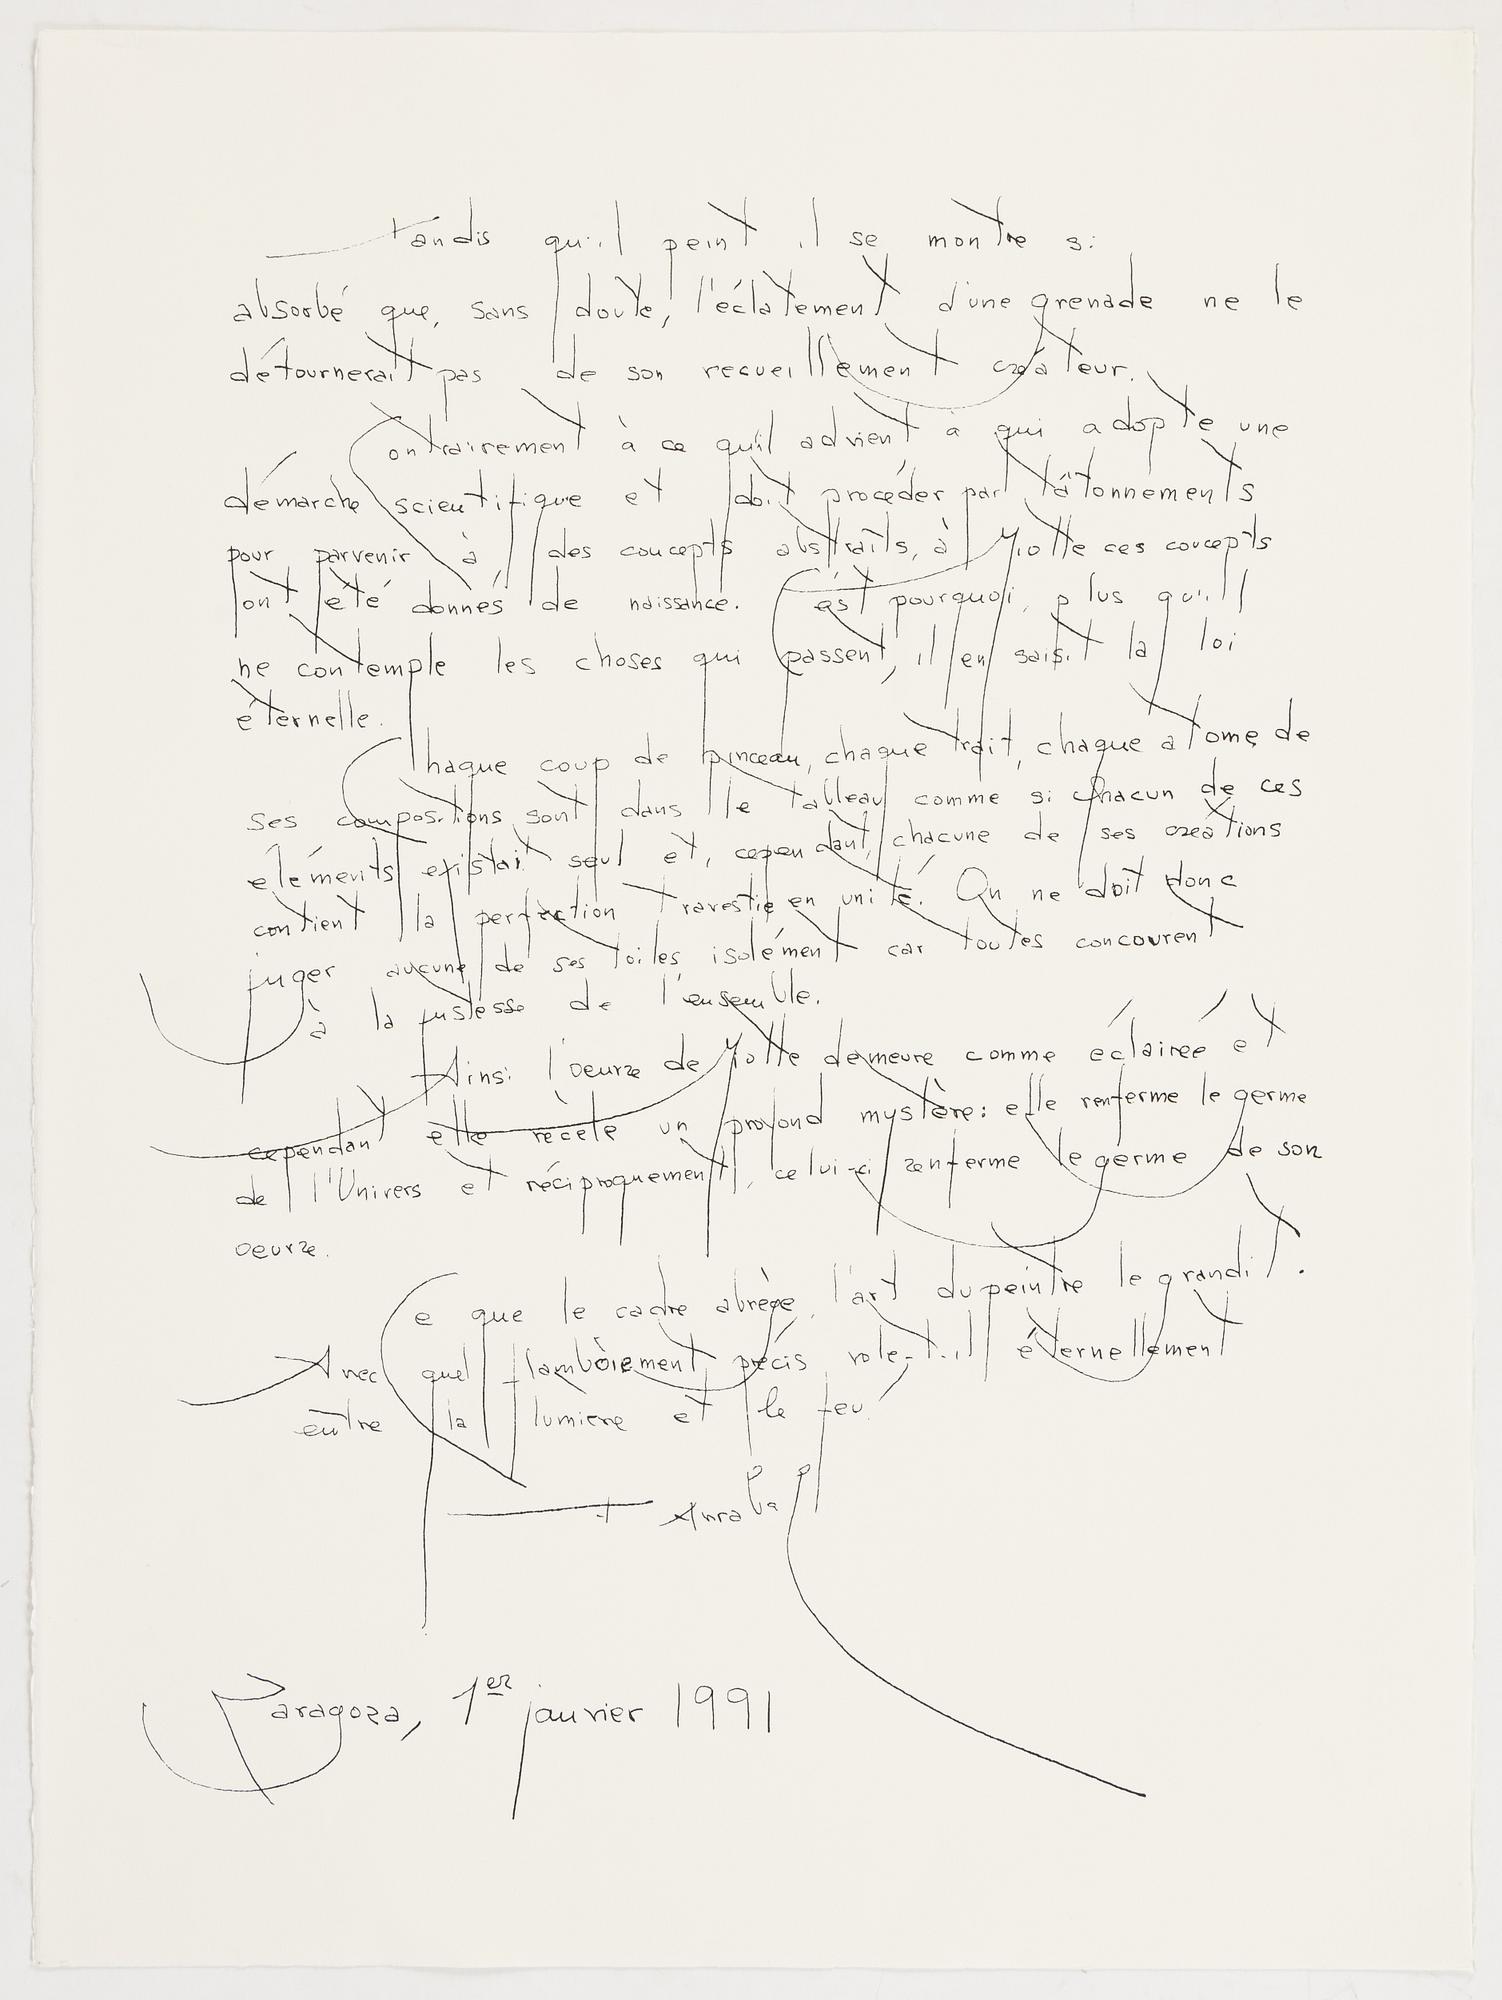 tandis qu'il peint il se montre si
absorbé que, sans doute, l'éclatement d'une grenade ne le
détournerait pas de son recueillement créateur.
Contrairement à ce qu'il advient à qui adopte une
démarche scientifique et doit procéder par tâtonnements
pour parvenir à des concepts abstraits, à Miotte ces concepts
ont été donnés de naissance. C'est pourquoi, plus qu'il
ne contemple les choses qui passent, il en saisit la loi
éternelle.
Chaque coup de pinceau, chaque trait, chaque atome de
ses compositions sont dans le tableau comme si chacun de ces
éléments existait seul et, cependant, chacune de ses créations
contient la perfection travestie en unité. On ne doit donc
juger aucune de ses toiles isolément car toutes concourent
à la justesse de l'ensemble.
Ainsi l'oeuvre de Miotte demeure comme éclairée et
cependant elle recèle un profond mystère: elle renferme le germe
de l'Univers et réciproquement, celui-ci renferme le germe de son
oeuvre.
Ce que le cadre abrège, l'art du peintre le grandit.
Avec quel flamboiement précis vole-t-il éternellement
entre la lumière et le feu!
Arrabal
Zaragoza, 1er janvier 1991